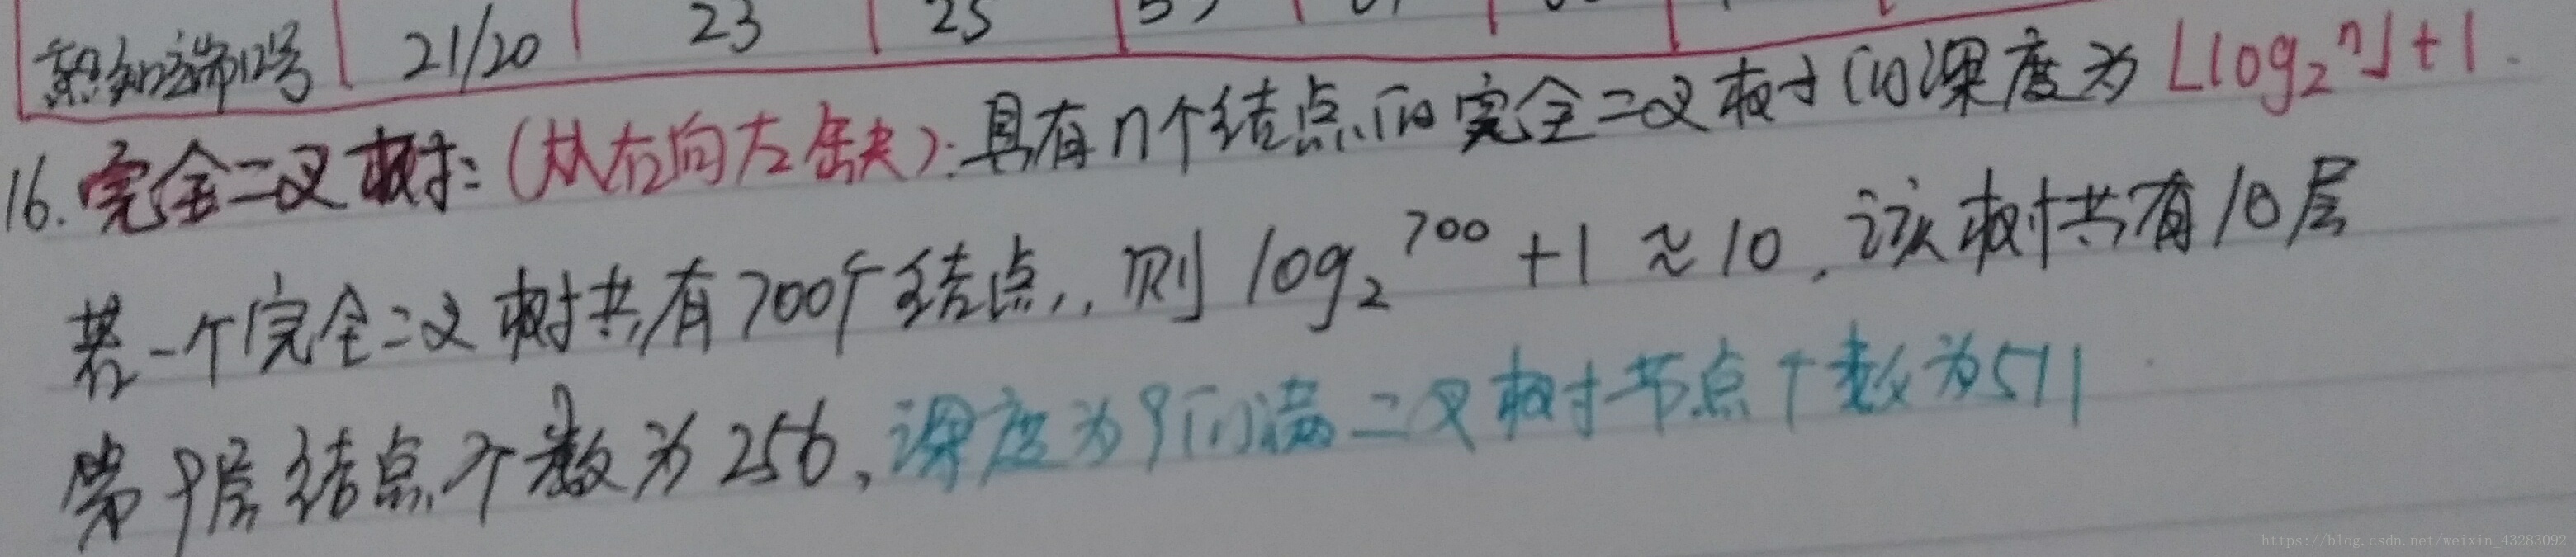 熟知端口号 21/20 23 25
16. 完全二叉树:(从右向左缺):具有n个结点的完全二叉树的深度为⌊log₂ⁿ⌋+1.
若一个完全二叉树共有700个结点,则 log₂⁷⁰⁰+1≈10,该树共有10层
第9层结点个数为256,深度为9的满二叉树节点个数为511
https://blog.csdn.net/weixin_43283092